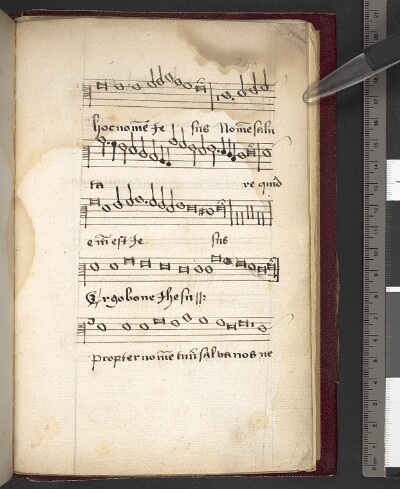 hoc nom̄e Je sus Nom̄e salu
ta re quid
em̄ est Je sus
Ergo bone Jhesu
propter nom̄e tuū salva nos ne